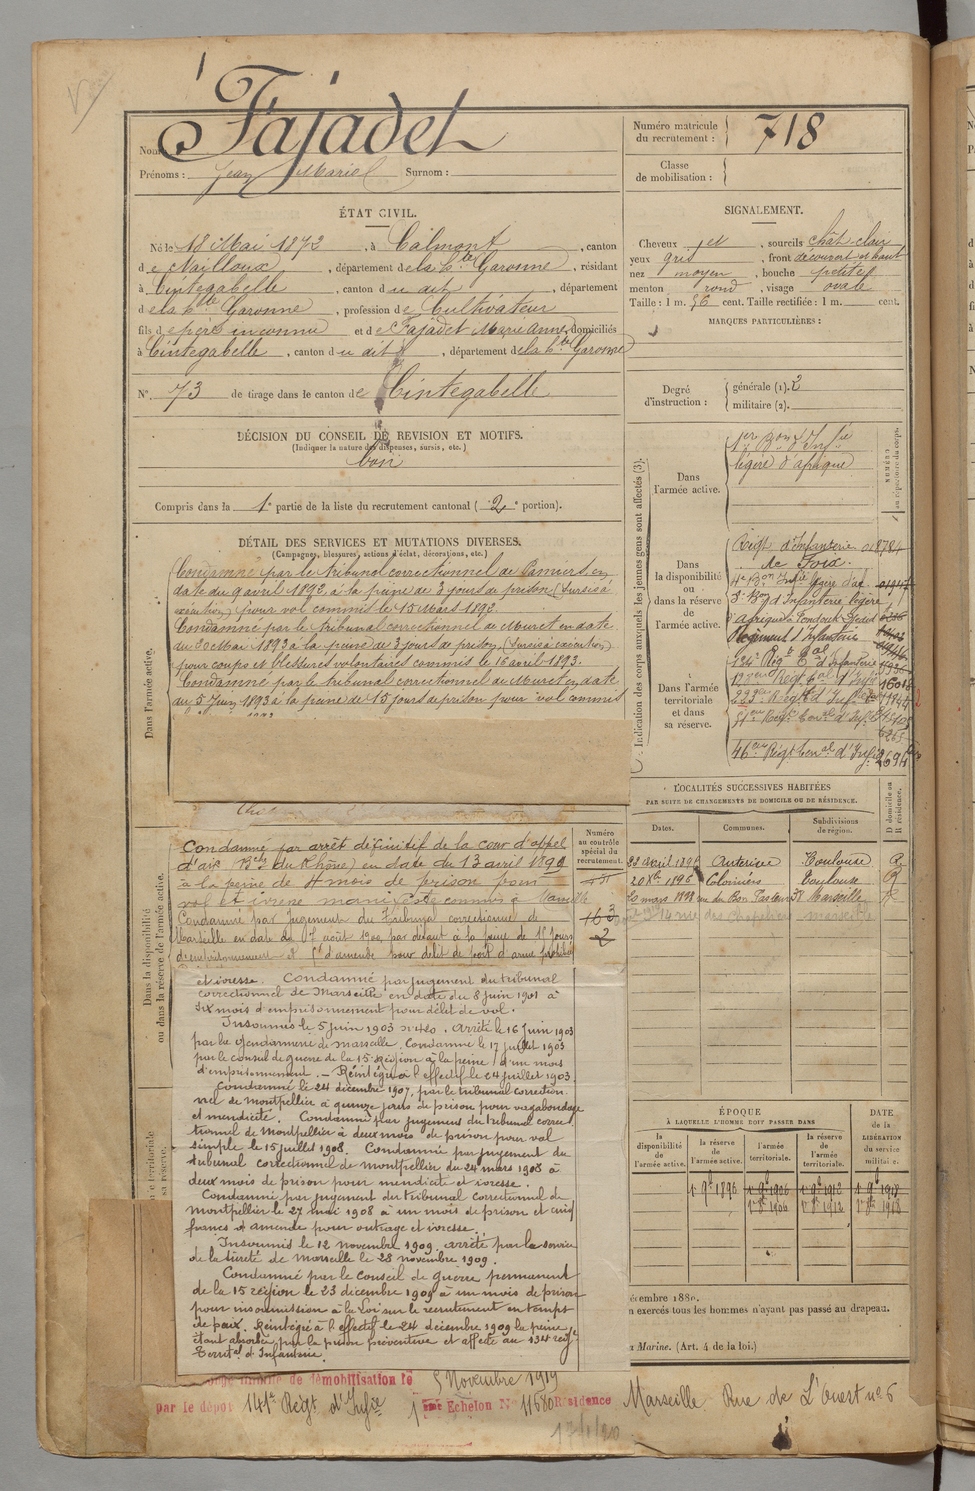 Nom Fajadet
Prénoms : Jean Marie Surnom :
Numéro matricule du recrutement : 718
Classe de mobilisation :
ÉTAT CIVIL.
Né le 18 Mai 1872, à Calmont, canton
de Nailloux, département de la Hte Garonne, résidant
à Cintegabelle, canton du dit, département
de la Hte Garonne, profession de Cultivateur
fils de père inconnu et de Fajadet Marie Anne, domiciliés
à Cintegabelle, canton du dit, département de la Hte Garonne
N°. 73 de tirage dans le canton de Cintegabelle
SIGNALEMENT.
Cheveux et, sourcils chât clair
yeux gris, front découvert et haut
nez moyen, bouche petite
menton rond, visage ovale
Taille : 1 m. 56 cent. Taille rectifiée : 1 m. cent.
MARQUES PARTICULIÈRES :
Degré d'instruction : générale (1). 2
militaire (2).
DÉCISION DU CONSEIL DE REVISION ET MOTIFS.
(Indiquer la nature des dispenses, sursis, etc.)
bon
Compris dans la 1e partie de la liste du recrutement cantonal (2e portion).
DÉTAIL DES SERVICES ET MUTATIONS DIVERSES.
(Campagnes, blessures, actions d'éclat, décorations, etc.)
Dans l'armée active.
Condamné par le tribunal correctionnel de Pamiers, en
date du 9 avril 1892, à la peine de 3 jours de prison (Sursis à
exécution) pour vol commis le 15 Mars 1892.
Condamné par le tribunal correctionnel de Muret en date
du 30 Mai 1893 à la peine de 3 jours de prison, (Sursis à exécution)
pour coups et blessures volontaires commis le 16 avril 1893.
Condamné par le tribunal correctionnel de Muret en date
du 5 Juin 1893 à la peine de 15 jours de prison pour vol commis
Dans la disponibilité
ou dans la réserve de l'armée active.
Numéro
au contrôle
spécial du
recrutement.
163
2
Condamné par arrêt définitif de la cour d'appel
d'aix (Bches du Rhône) en date du 13 avril 1899
à la peine de 4 mois de prison pour
vol et ivresse manifeste commis à Marseille
Condamné par Jugement du Tribunal correctionnel de
Marseille en date du août 1900 par défaut à la peine de 15 jours
d'emprisonnement et 5f d'amende pour délit de port d'arme prohibée
et ivresse. Condamné par jugement du tribunal
correctionnel de Marseille en date du 8 juin 1901 à
six mois d'emprisonnement pour délit de vol.
Insoumis le 5 juin 1903 n° 480. Arrêté le 16 juin 1903
par la gendarmerie de marseille. Condamné le 17 juillet 1903
par le conseil de guerre de la 15e Région à la peine d'un mois
d'emprisonnement. — Réintégré à l'effectif le 24 juillet 1903
Condamné le 24 décembre 1907, par le tribunal correction
nel de Montpellier à quinze jours de prison pour vagabondage
et mendicité. Condamné par jugement du tribunal correc
tionnel de Montpellier à deux mois de prison pour vol
simple le 15 juillet 1908. Condamné par jugement du
tribunal correctionnel de Montpellier du 24 mars 1908 à
deux mois de prison pour mendicité et ivresse.
Condamné par jugement du tribunal correctionnel de
Montpellier le 27 mai 1908 à un mois de prison et cinq
francs d'amende pour outrage et ivresse.
Insoumis le 12 novembre 1909, arrêté par le service
de la sureté de Marseille le 28 novembre 1909.
Condamné par le Conseil de guerre permanent
de la 15 région le 23 décembre 1909 à un mois de prison
pour insoumission à la Loi sur le recrutement en temps
de paix. Réintégré à l'effectif le 24 décembre 1909 la peine
étant absorbée par la prison préventive et affecté au 134e régt
Territal d'Infanterie.
Indication des corps auxquels les jeunes gens sont affectés (3).
NUMÉRO
au répertoire du corps.
Dans l'armée active.
1er Bon d'Infie
légère d'afrique
Dans la disponibilité ou dans la réserve de l'armée active.
Régt d'Infanterie 018784
de Foix.
4e Bon Infie légère d'af
3e Bon d'Infanterie légère
d'afrique
Régiment d'Infanterie
Dans l'armée territoriale et dans sa réserve.
124e Régt d'Infanterie
46e Régt d'Infie
LOCALITÉS SUCCESSIVES HABITÉES
PAR SUITE DE CHANGEMENTS DE DOMICILE OU DE RÉSIDENCE.
Dates. Communes. Subdivisions de région. D domicile ou R résidence.
avril 1896 Auterive Toulouse R
20 Xbre 1896 Colomiers Toulouse R
20 mars 1898 rue du Bon Pasteur 38 Marseille R
14 rue des Chapeliers marseille
ÉPOQUE
À LAQUELLE L'HOMME DOIT PASSER DANS
la disponibilité de l'armée active. la réserve de l'armée active. l'armée territoriale. la réserve de l'armée territoriale.
DATE de la LIBÉRATION du service militaire.
1er 9bre 1896 1er 9bre 1906 1er 9bre 1912 1er 9bre 1918
1er 8bre 1906 1er 8bre 1912 1er 8bre 1918
écembre 1880.
n exercés tous les hommes n'ayant pas passé au drapeau.
Marine. (Art. 4 de la loi.)
de démobilisation le 5 Novembre 1919
par le dépôt 141e Régt d'Infie 1er Echelon N° 11680 Résidence Marseille Rue de L'Ouest n° 6